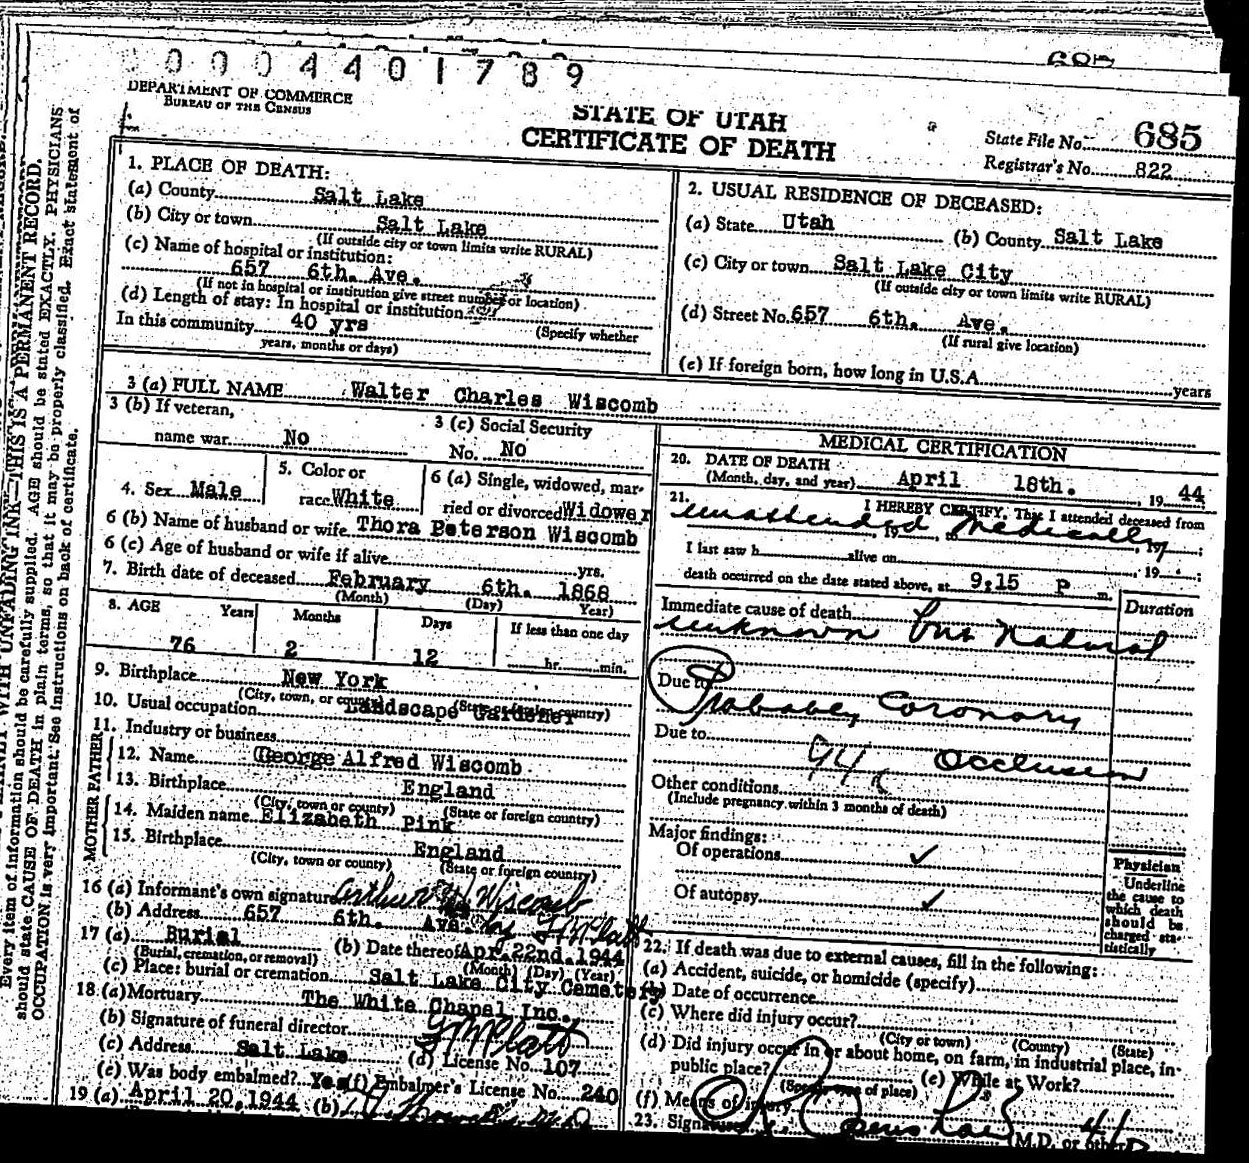 0004401789
DEPARTMENT OF COMMERCE
BUREAU OF THE CENSUS
STATE OF UTAH
CERTIFICATE OF DEATH
State File No. 685
Registrar's No. 822
Every item of information should be carefully supplied. AGE should be stated EXACTLY. PHYSICIANS
should state CAUSE OF DEATH in plain terms, so that it may be properly classified. Exact statement of
OCCUPATION is very important. See instructions on back of certificate.
WITH UNFADING INK—THIS IS A PERMANENT RECORD.
1. PLACE OF DEATH:
(a) County Salt Lake
(b) City or town Salt Lake
(If outside city or town limits write RURAL)
(c) Name of hospital or institution:
657 6th. Ave.
(If not in hospital or institution give street number or location)
(d) Length of stay: In hospital or institution
(Specify whether
In this community 40 yrs
years, months or days)
2. USUAL RESIDENCE OF DECEASED:
(a) State Utah (b) County Salt Lake
(c) City or town Salt Lake City
(If outside city or town limits write RURAL)
(d) Street No. 657 6th. Ave.
(If rural give location)
(e) If foreign born, how long in U.S.A. years
3 (a) FULL NAME Walter Charles Wiscomb
3 (b) If veteran,
name war No
3 (c) Social Security
No. No
4. Sex Male
5. Color or
race White
6 (a) Single, widowed, mar-
ried or divorced Widower
6 (b) Name of husband or wife Thora Peterson Wiscomb
6 (c) Age of husband or wife if alive yrs.
7. Birth date of deceased February 6th. 1868
(Month) (Day) Year)
8. AGE Years Months Days If less than one day
76 2 12 hr. min.
9. Birthplace New York
(City, town, or county) (State or foreign country)
10. Usual occupation Landscape Gardener
11. Industry or business
FATHER
12. Name George Alfred Wiscomb
13. Birthplace England
(City, town or county) (State or foreign country)
MOTHER
14. Maiden name Elizabeth Pink
15. Birthplace England
(City, town or county) (State or foreign country)
16 (a) Informant's own signature Arthur W Wiscomb
(b) Address 657 6th. Ave. by
17 (a) Burial (b) Date thereof Apr. 22nd. 1944
(Burial, cremation, or removal) (Month) (Day) (Year)
(c) Place: burial or cremation Salt Lake City Cemetery
18 (a) Mortuary The White Chapel Inc.
(b) Signature of funeral director
(c) Address Salt Lake (d) License No. 107
(e) Was body embalmed? Yes (f) Embalmer's License No. 240
19 (a) April 20, 1944 (b)
MEDICAL CERTIFICATION
20. DATE OF DEATH
(Month, day, and year) April 18th. , 19 44
21. I HEREBY CERTIFY, That I attended deceased from
unattended medically
, 19 , to , 19 ;
I last saw h alive on , 19 ;
death occurred on the date stated above, at 9:15 P m.
Duration
Immediate cause of death
unknown but natural
Due to
Probably Coronary
Due to
94a Occlusion
Other conditions
(Include pregnancy within 3 months of death)
Major findings:
Of operations ✓
Of autopsy ✓
Physician
Underline
the cause to
which death
should be
charged sta-
tistically
22. If death was due to external causes, fill in the following:
(a) Accident, suicide, or homicide (specify)
(b) Date of occurrence
(c) Where did injury occur?
(City or town) (County) (State)
(d) Did injury occur in or about home, on farm, in industrial place, in-
public place? (e) While at Work?
(Specify type of place)
(f) Means of injury
23. Signature M.D. or other